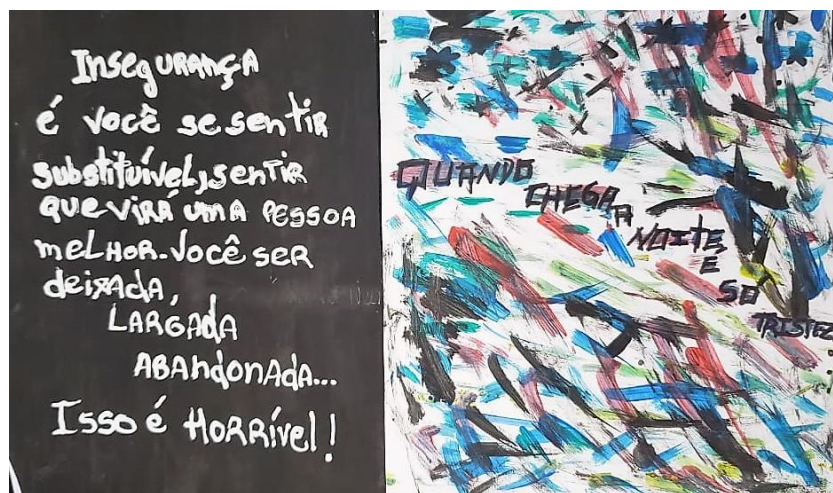 Insegurança
é você se sentir
substituível, sentir
que virá uma pessoa
melhor. Você ser
deixada,
largada
abandonada...
Isso é horrível!
QUANDO
CHEGA
A
NOITE
E
SO
TRISTEZ